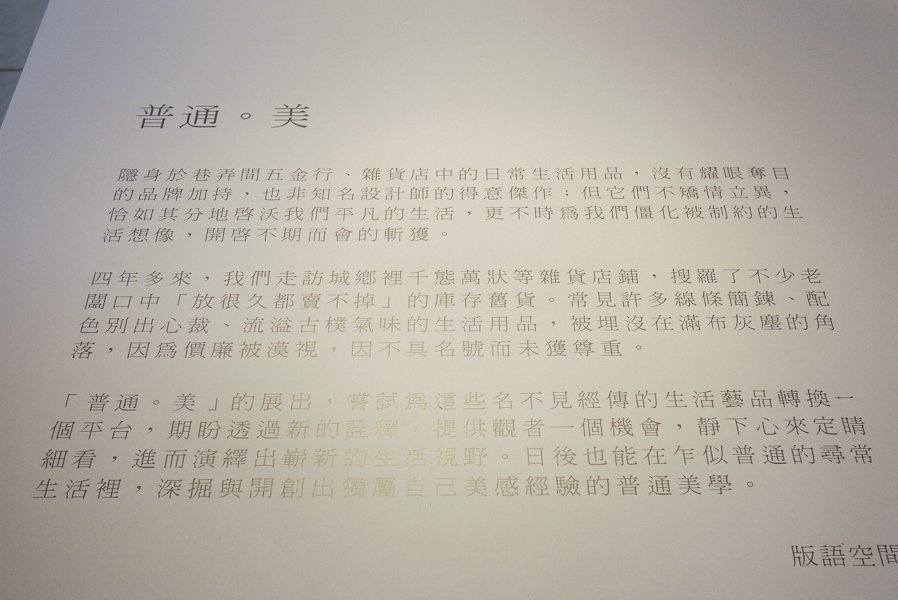 普通。美
隱身於巷弄間五金行、雜貨店中的日常生活用品，沒有耀眼奪目
的品牌加持，也非知名設計師的得意傑作；但它們不矯情立異，
恰如其分地啓沃我們平凡的生活，更不時爲我們僵化被制約的生
活想像，開啓不期而會的斬獲。
四年多來，我們走訪城鄉裡千態萬狀等雜貨店鋪，搜羅了不少老
闆口中「放很久都賣不掉」的庫存舊貨。常見許多線條簡鍊、配
色別出心裁、流溢古樸氣味的生活用品，被埋沒在滿布灰塵的角
落，因爲價廉被漠視，因不具名號而未獲尊重。
「普通。美」的展出，嘗試爲這些名不見經傳的生活藝品轉換一
個平台，期盼透過新的詮釋，提供觀者一個機會，靜下心來定睛
細看，進而演繹出嶄新的生活視野。日後也能在乍似普通的尋常
生活裡，深掘與開創出獨屬自己美感經驗的普通美學。
版語空間